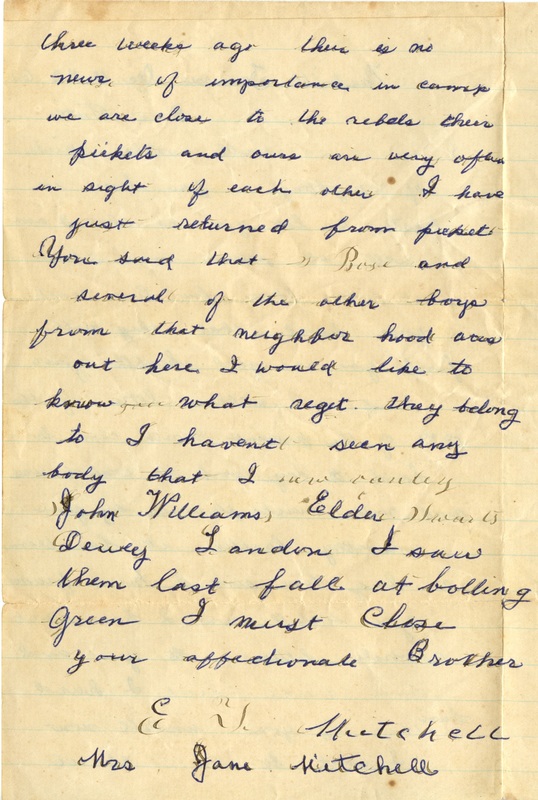 three weeks ago their is no
news of importance in camp
we are close to the rebels their
pickets and ours are very often
in sight of each other I have
just returned from picket
You said that Bose and
several of the other boys
from that neighbor hood was
out here I would like to
know what reget. they belong
to I havent seen any
body that I
John Williams Elder Swarts
Dewey Landon I saw
them last fall at bolling
Green I must Close
your affectionate Brother
E Y Mitchell
Mrs Jane Mitchell